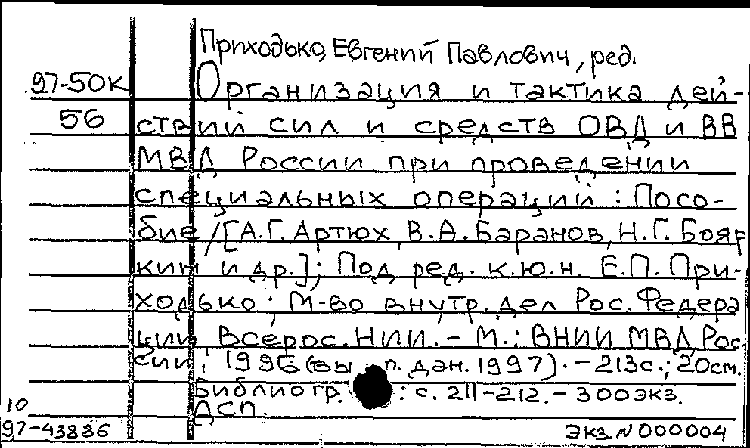 Приходько, Евгений Павлович, ред.
97-50К Организация и тактика дей-
56 ствий сил и средств ОВД и ВВ
МВД России при проведении
специальных операций : Посо-
бие / [А.Г. Артюх, В.А. Баранов, Н.Г. Бояр
кин и др.] ; Под ред. к.ю.н. Е.П. При-
ходько ; М-во внутр. дел Рос. Федера
ции, Всерос. НИИ. - М. : ВНИИ МВД Рос
сии, 1996 (вы п. дан. 1997). - 213с. ; 20см.
Библиогр. : с. 211-212. - 300экз.
ДСП
10
97-43836 Экз. N 000004